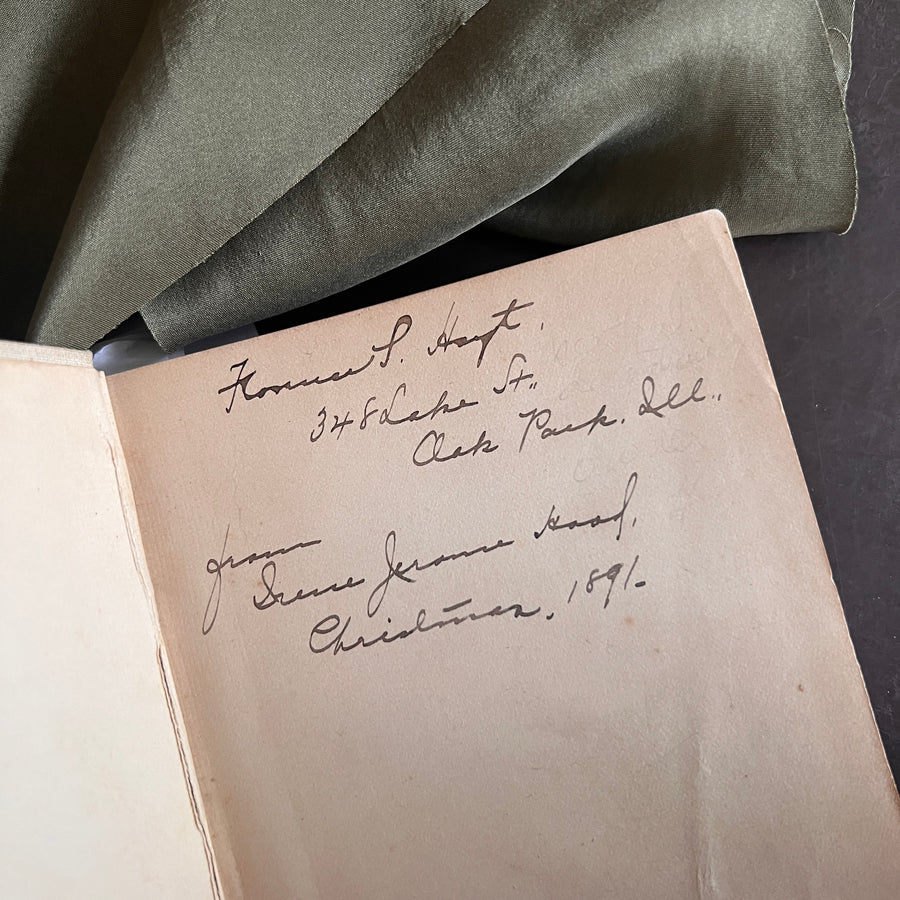 Florence S. Hoyt,
348 Lake St.,
Oak Park, Ill.,
from
Irene Jerome Hood,
Christmas, 1891-